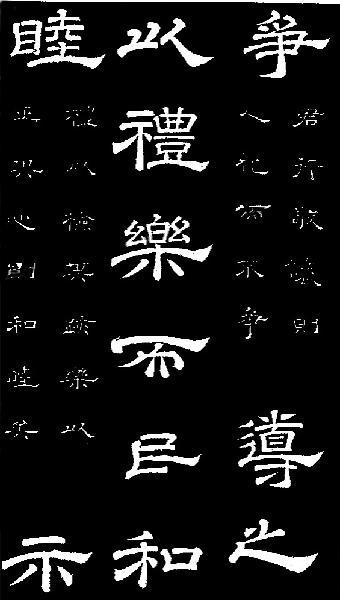 爭
君行敬讓則
人化而不爭
導之
以禮樂而民和
睦
禮以檢其跡樂以
正其心則和睦矣
示